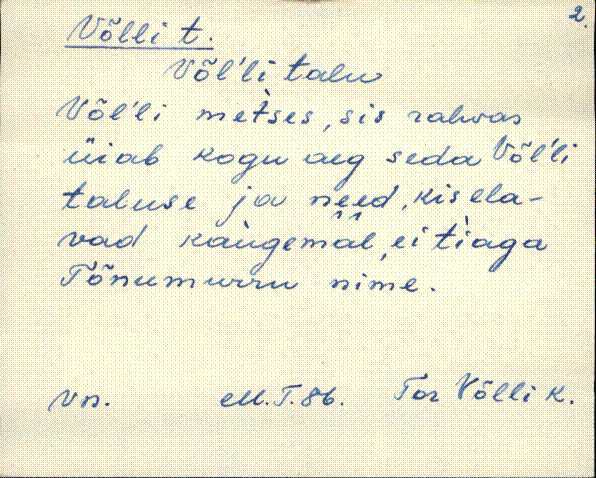 2.
Võlli t.
Võl'li talu
Võl'li metses, sis rahvas
üiab kogu aeg seda Võl'li
taluse ja need, kis ela-
vad kaugemal, ei tiaga
Tõnumurru nime.
Vn. M.T. 86. Tor Võlli k.